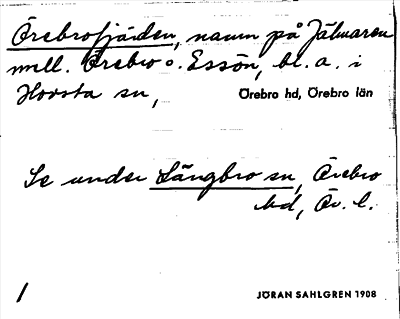 Örebrofjärden, namn på Jälmaren
mell. Örebro o. Essön, bl. a. i
Hovsta sn,
Örebro hd, Örebro län
Se under Längbro sn, Örebro
hd, Ör. l.
1
JÖRAN SAHLGREN 1908